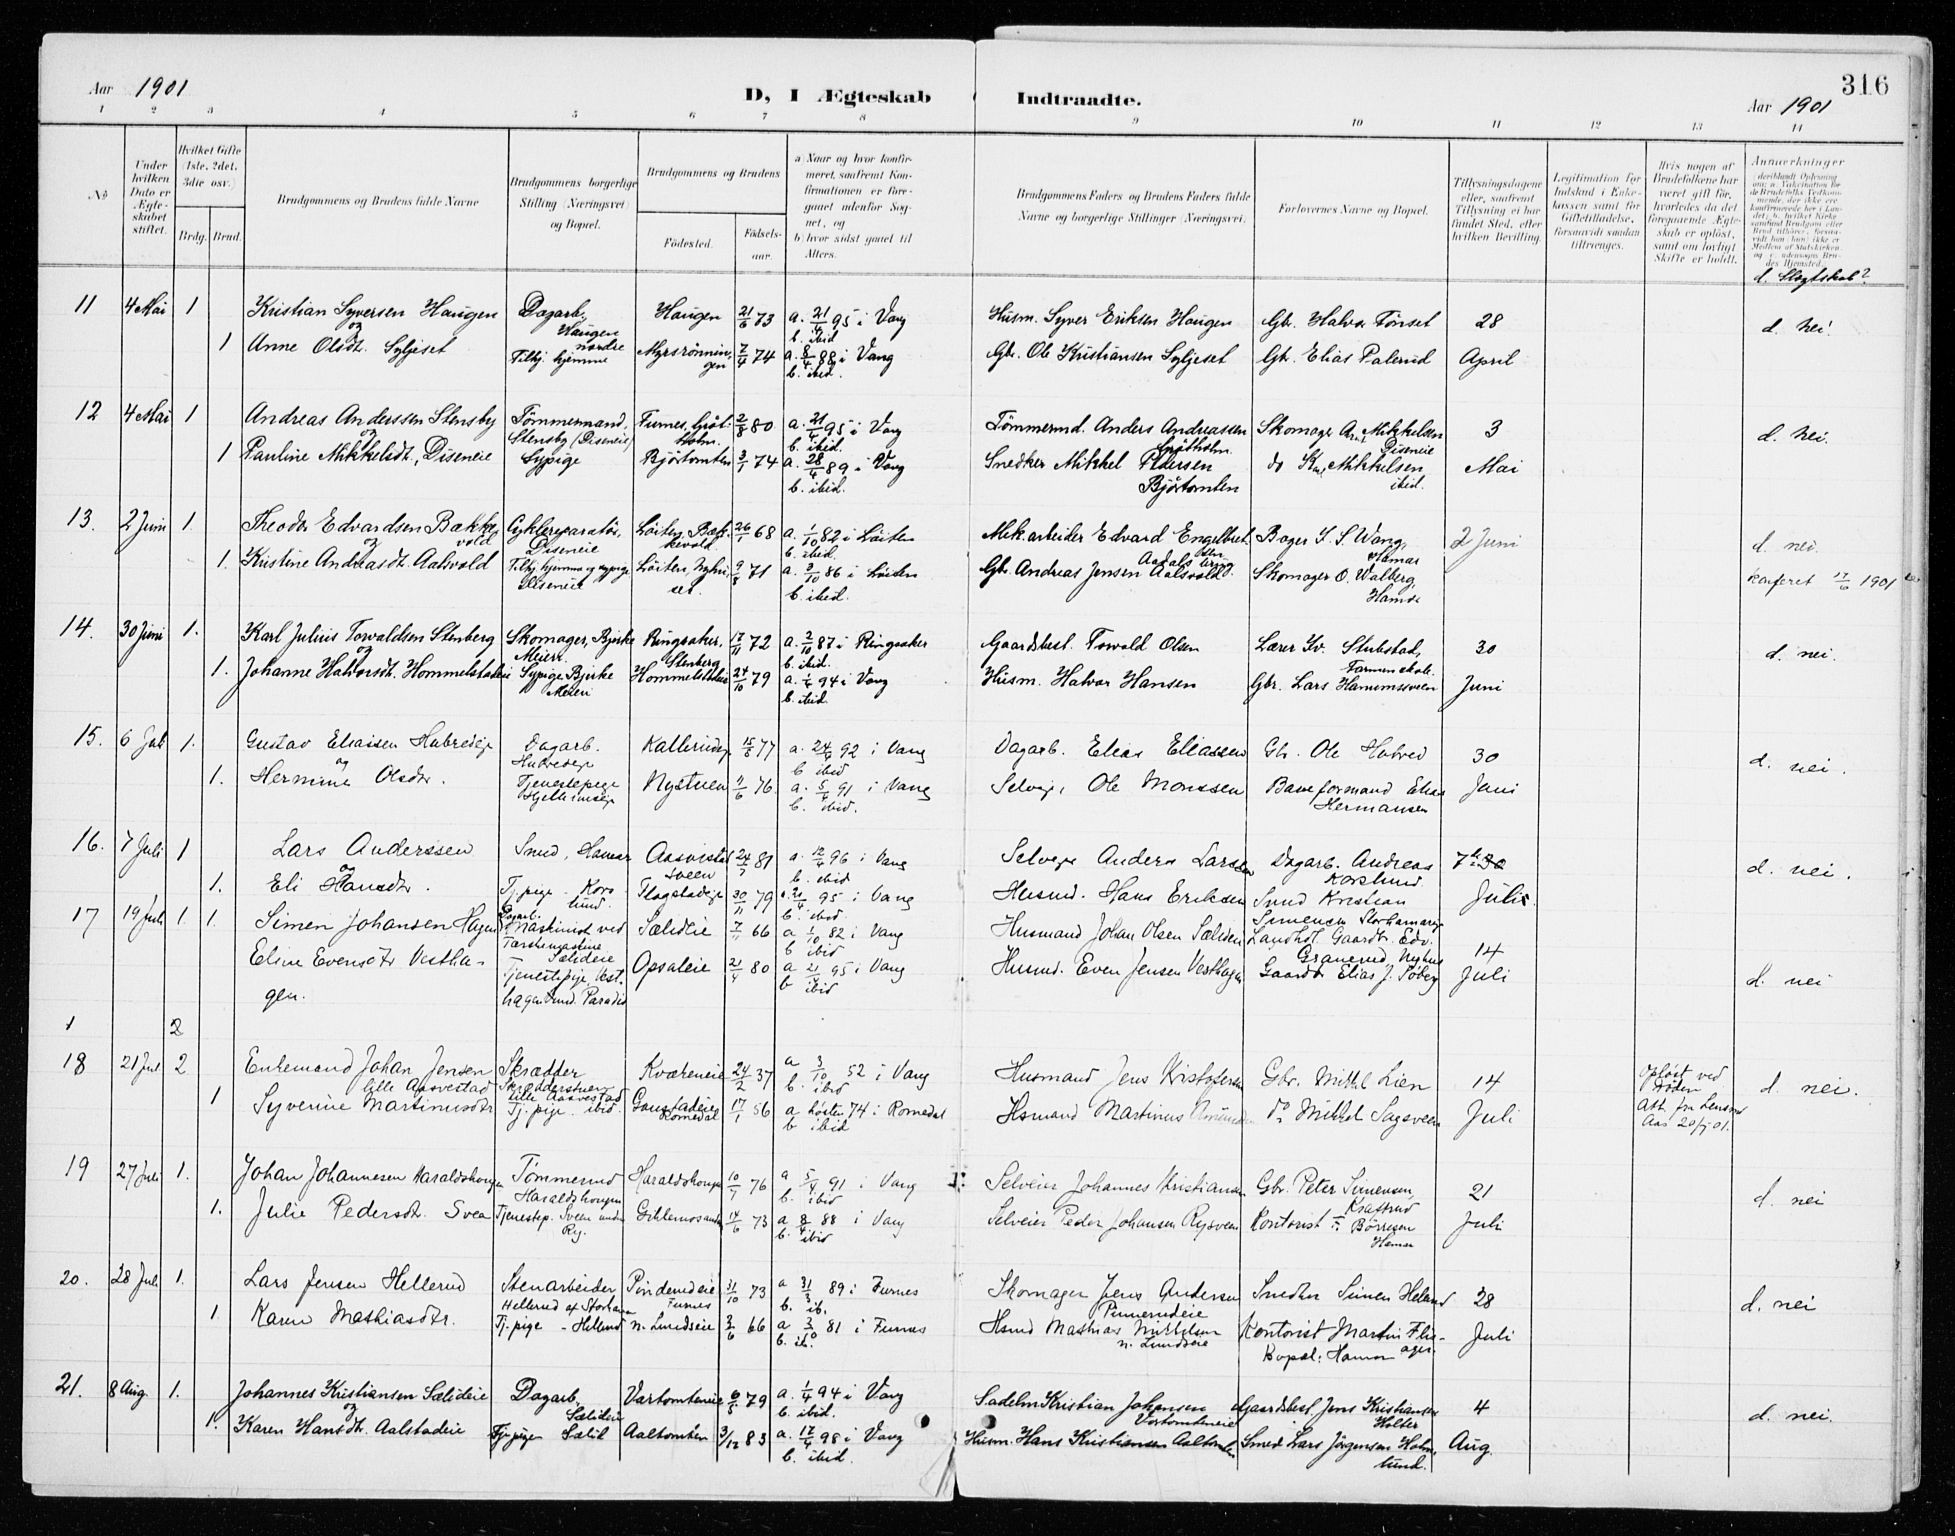 Aar 1901
D, I Ægteskab Indtraadte.
316
Aar 1901
1 2 3 4 5 6 7 8 9 10 11 12 13 14
No
Under hvilken Dato er Ægteskabet stiftet.
Hvilket Gifte (1ste, 2det, 3die osv.)
Brdg. Brud.
Brudgommens og Brudens fulde Navne
Brudgommens borgerlige Stilling (Næringsvei) og Bopæl.
Brudgommens og Brudens
Fødested.
Fødselsaar.
a) Naar og hvor konfirmeret, saafremt Konfirmationen er foregaaet udenfor Sognet, og
b) hvor sidst gaaet til Alters.
Brudgommens Faders og Brudens Faders fulde Navne og borgerlige Stillinger (Næringsvei).
Forlovernes Navne og Bopæl.
Tillysningsdagene eller, saafremt Tillysning ei har fundet Sted, efter hvilken Bevilling.
Legitimation for Indskud i Enkekassen samt for Giftetilladelse, forsaavidt saadan tiltrænges.
Hvis nogen af Brudefolkene har været gift før, hvorledes da det foregaaende Ægteskab er opløst, samt om lovligt Skifte er holdt.
Anmærkninger
d. Slegtskab?
11 4 Mai 1 Kristian Syversen Haugen Dagarb. Haugen nordre Haugen 21/6 73 a. 21/4 95 i Vang b. ibid Husm. Syver Eriksen Haugen Gbr. Halvor Tønset 28 d. Nei!
og
1 Anne Olsdt. Syljeset Tilhj. hjemme 7/4 74 a. 8/4 88 i Vang b. ibid. Gbr. Ole Kristiansen Syljeset Gbr. Elias Palerud April
12 4 Mai 1 Andreas Anderssen Stensby Tømmermand, Stensby (Diseneie) Furnes, 2/8 80 a. 21/4 95 i Vang b. ibid. Tømmermd. Anders Andreassen Skomager Mikkelsen Diseneie 3 d. Nei.
og
1 Pauline Mikkelsdt., Diseneie Sypige Bjørtomten 3/1 74 a. 28/4 89 i Vang b. ibid. Snedker Mikkel Pedersen Bjørtomten do Mikkelsen ibid. Mai
13. 2 Juni 1. Theodor Edvardsen Bækkevold Cyklereparatør, Diseneie Løiten, Bækkevold 26/1 68 a. 1/10 82 i Løiten b. ibid. Mek.arbeider Edvard Engelbret Bager S. S. Wang, Hamar 2 Juni d. nei.
og
1. Kristine Andreasdt. Aalsvold Tilhj. hjemme og sypige Diseneie Løiten, 9/8 71 a. 3/10 86 i Løiten b. ibid. Gbr. Andreas Jensen Aalsvold. Skomager O. Walberg, Hamar 17/6 1901
14. 30 Juni 1. Karl Julius Torvaldsen Stenberg Skomager, Bjerke Meieri Ringsaker, Stenberg 17/11 72 a. 2/10 87 i Ringsaker b. ibid. Gaardsbest. Torvald Olsen Lærer Iv. Stubstad, 30 d. nei.
og
1. Johanne Halvorsdt. Hommelstadeie Sypige Bjerke Meieri Hommelstadeie 24/10 79 a. 1/4 94 i Vang b. ibid. Husm. Halvor Hansen Gbr. Lars Juni
15. 6 Juli 1. Gustav Eliassen Hubredeje Dagarb. Hubredeje 15/8 77 a. 24/4 92 i Vang b ibid Dagarb. Elias Eliassen Gbr. Ole Hubred 30 d. nei.
og
1. Hermine Olsdtr. Tjenestepige Nystuen 76 a. 5/4 91 i Vang b. ibid. Selvej. Ole Monssen Baneformand Elias Hermansen Juni
16. 7 Juli 1 Lars Anderssen Smed, Hamar Aasvestad sveen 81 a. 12/4 96 i Vang b. ibid Selveje Anders Larsen Dagarb. Andreas Korslund 7de d. nei.
og
1. Eli Hansdtr. Tj.pige Korslund. Flagstadeje 30/11 79 a. 21/4 95 i Vang b ibid Husmd. Hans Eriksen Smed Kristian Simensen Storhamarej Juli
17 19 Juli 1. 1. Simen Johansen Hagen Dagarb. Maskinist ved Tærskemaskine Sælideie Sælideie 7/1 66 a 1/10 82 i Vang b ibid Husmand Johan Olsen Sælideie Landhdl. Gaardbr. Edv. Granerud, Nyhus 14
Eline Evensdtr Vesthagen. Tjenestepige, Vesthagen und. Paradis Opsaleie 21/4 80 a 21/4 95 i Vang b ibid Husmd. Even Jensen Vesthagen Gaardbr Elias J. Juli d. nei
1 2
18 21 Jul 2 Enkemand Johan Jensen lille Aasvestad Skrædder Skrædderstuen lille Aasvestad Kværneie 24/2 37 a 3/10 52 i Vang b. ibid Husmand Jens Kristofersen Gbr. Mikkel Lien 14 Opløst ved Døden Att. fra Lensmd Aas 20/7 01. d. nei.
1 Syverine Martinusdtr Tj.pige ibid. Gaustadeie Romedal 17/1 56 a høsten 74 i Romedal b ibid Hsmand Martinus do Mikkel Sagsveen Juli
19 27 Juli 1. Johan Johannesen Haraldshaugen Tømmermd Haraldshaugen Haraldshaugen 10/7 76 a 5/4 91 i Vang b. ibid Selveier Johannes Kristiansen Gbr. Peter Simensen, Kraftrud 21 d. nei
1. Julie Pedersdtr. Sveen Tjenestep. Sveen under Ry. 14/6 73 a 8/4 88 i Vang b. ibid Selveier Peder Johansen Rysveen Kontorist Børresen Hamar Juli
20. 28 Juli 1. Lars Jensen Hellerud Stenarbeider Hellerud af Storhamar Pinderudeie Furnes 31/10 73 a 31/3 89 i Furnes b. ib. Skomager Jens Andersen Pinnerudeie Snedker Simen Helerud 28 d. nei
1. Karen Mathiasdtr. Tj.pige - Hellerud n. Lundseie 3/6 66 a 3/ 81 i Furnes b. ib. Hsmd Mathias Mikkelsen n. Lundseie Kontorist Martin Flisager. Bopæl: Hamar Juli
21. 8 Aug. 1. Johannes Kristiansen Sælideie Dagarb. Sælideie Vartomteneie 6/5 79 a. 1/4 94 i Vang b. ibid. Sadelm Kristian Johansen Vartomteneie Gaardsbest. Jens Kristiansen Holter 4 d. nei.
og
1. Karen Hansdt. Aalstadeie Tj.pige Sælid Aaltomten 3/12 83 a. 17/4 98 i Vang b. ibid. Husm. Hans Kristiansen Aaltomten Smed Lars Jørgensen Holmlund. Aug.